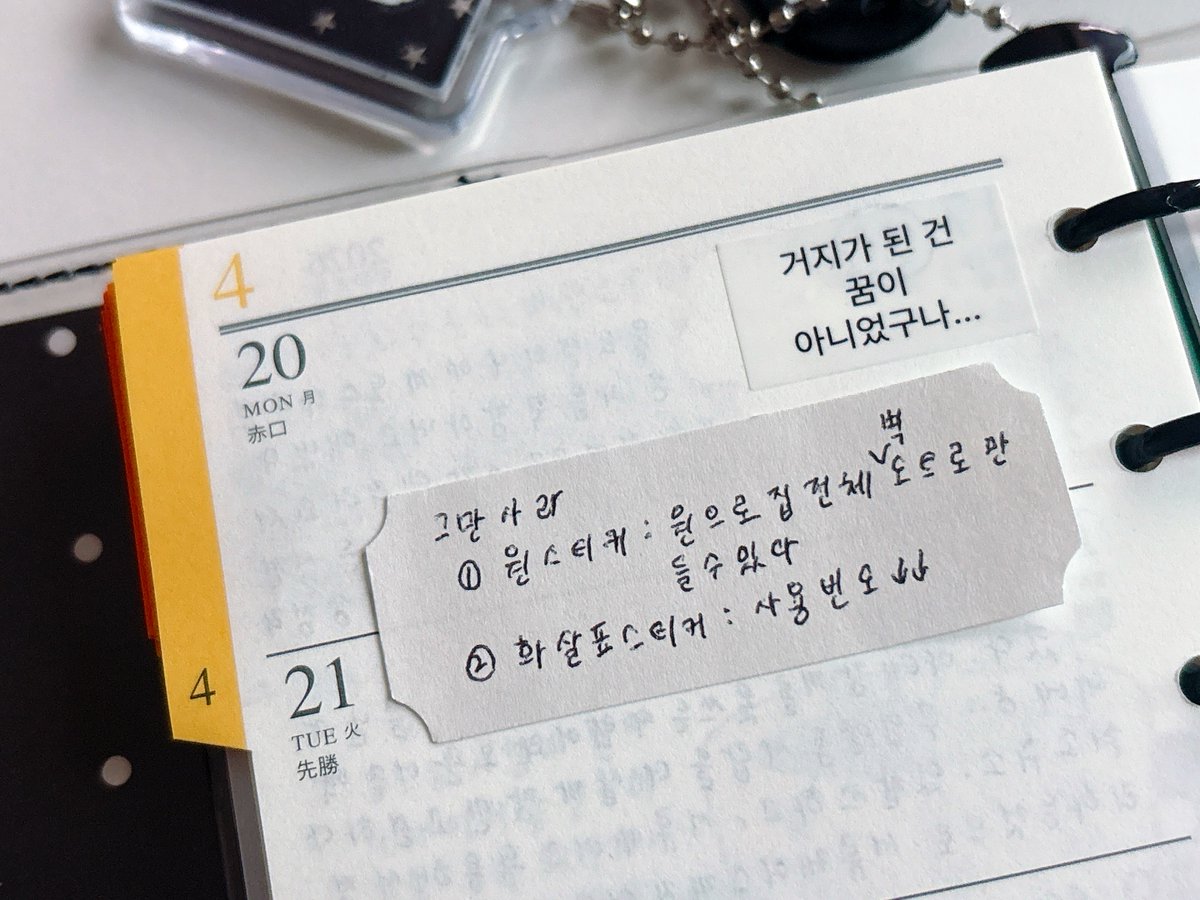 4
20
MON 月
赤口
거지가 된 건
꿈이
아니었구나...
그만 사라
① 원스티커 : 원으로 집 전체 벽 도크로 만
들 수 있다
② 화살표스티커 : 사용빈도 ↑↑
4
21
TUE 火
先勝